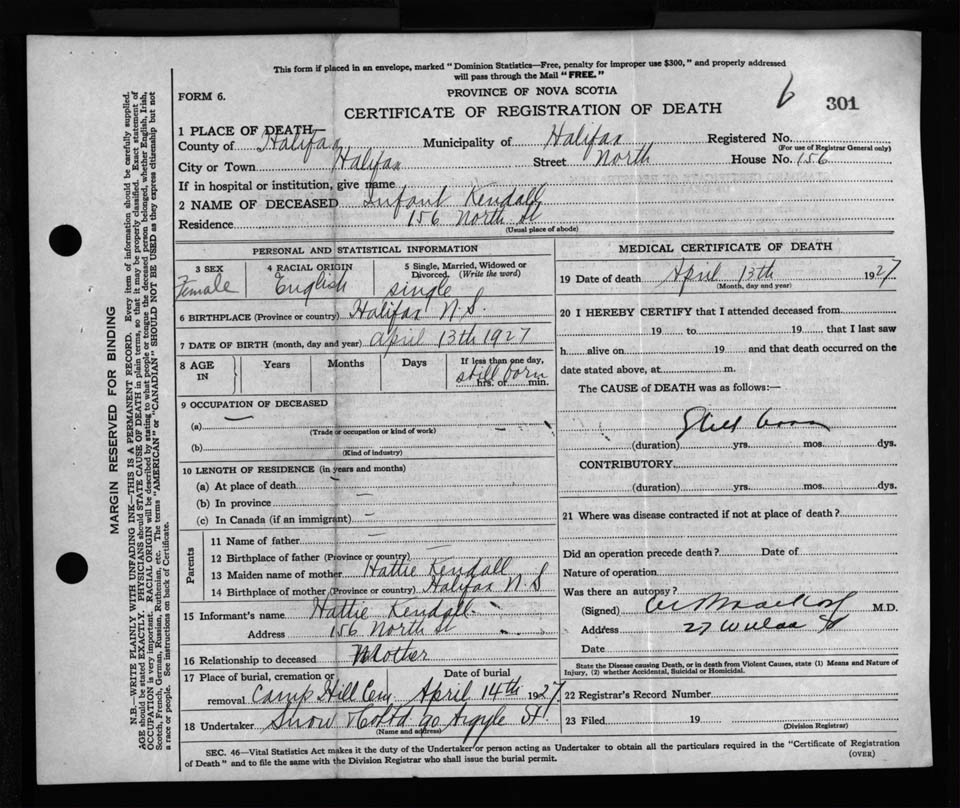 This form if placed in an envelope, marked "Dominion Statistics—Free, penalty for improper use $300," and properly addressed
will pass through the Mail "FREE."
FORM 6.
PROVINCE OF NOVA SCOTIA
CERTIFICATE OF REGISTRATION OF DEATH
6
301
1 PLACE OF DEATH—
County of Halifax Municipality of Halifax Registered No.
(For use of Registrar General only)
City or Town Halifax Street North House No. 156
If in hospital or institution, give name
2 NAME OF DECEASED Infant Kendall
Residence 156 North St
(Usual place of abode)
PERSONAL AND STATISTICAL INFORMATION
3 SEX 4 RACIAL ORIGIN 5 Single, Married, Widowed or
Divorced. (Write the word)
Female English single
6 BIRTHPLACE (Province or country) Halifax N.S.
7 DATE OF BIRTH (month, day and year) April 13th 1927
8 AGE IN Years Months Days If less than one day,
still born
hrs. or min.
9 OCCUPATION OF DECEASED
(a) —
(Trade or occupation or kind of work)
(b)
(Kind of industry)
10 LENGTH OF RESIDENCE (in years and months)
(a) At place of death —
(b) In province —
(c) In Canada (if an immigrant) —
Parents
11 Name of father —
12 Birthplace of father (Province or country) —
13 Maiden name of mother Hattie Kendall
14 Birthplace of mother (Province or country) Halifax N.S
15 Informant's name Hattie Kendall
Address 156 North St
16 Relationship to deceased Mother
17 Place of burial, cremation or Date of burial
removal Camp Hill Cem April 14th 1927
18 Undertaker Snow & Co Ltd 90 Argyle St.
(Name and address)
MEDICAL CERTIFICATE OF DEATH
19 Date of death April 13th 1927
(Month, day and year)
20 I HEREBY CERTIFY that I attended deceased from
19 to 19 that I last saw
h alive on 19 and that death occurred on the
date stated above, at m.
The CAUSE of DEATH was as follows:—
Still born
(duration) yrs. mos. dys.
CONTRIBUTORY
(duration) yrs. mos. dys.
21 Where was disease contracted if not at place of death?
Did an operation precede death? Date of
Nature of operation
Was there an autopsy?
(Signed) M.D.
Address 27
Date
State the Disease causing Death, or in death from Violent Causes, state (1) Means and Nature of
Injury, (2) whether Accidental, Suicidal or Homicidal.
22 Registrar's Record Number
23 Filed 19
(Division Registrar)
SEC. 46—Vital Statistics Act makes it the duty of the Undertaker or person acting as Undertaker to obtain all the particulars required in the "Certificate of Registration
of Death" and to file the same with the Division Registrar who shall issue the burial permit.
(OVER)
MARGIN RESERVED FOR BINDING
N.B.—WRITE PLAINLY WITH UNFADING INK—THIS IS A PERMANENT RECORD. Every item of information should be carefully supplied.
AGE should be stated EXACTLY. PHYSICIANS should STATE CAUSE OF DEATH in plain terms, so that it may be properly classified. Exact statement of
OCCUPATION is very important. RACIAL ORIGIN will be described by stating to what people or tongue the deceased person belonged, whether English, Irish,
Scotch, French, German, Russian, Ruthenian, etc. The terms "AMERICAN" or "CANADIAN" SHOULD NOT BE USED as they express citizenship but not
a race or people. See instructions on back of Certificate.